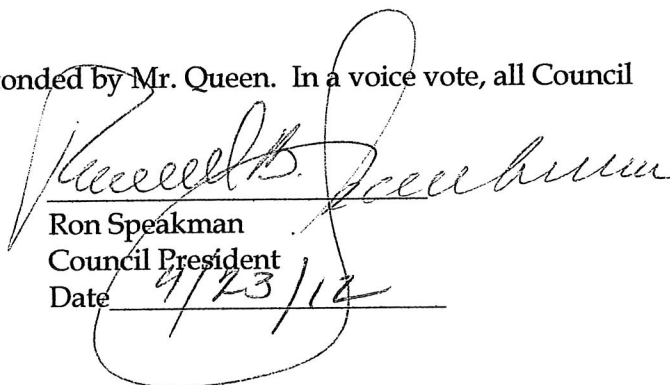 onded by Mr. Queen. In a voice vote, all Council
Ronald B. Speakman
Ron Speakman
Council President
Date 4/23/12